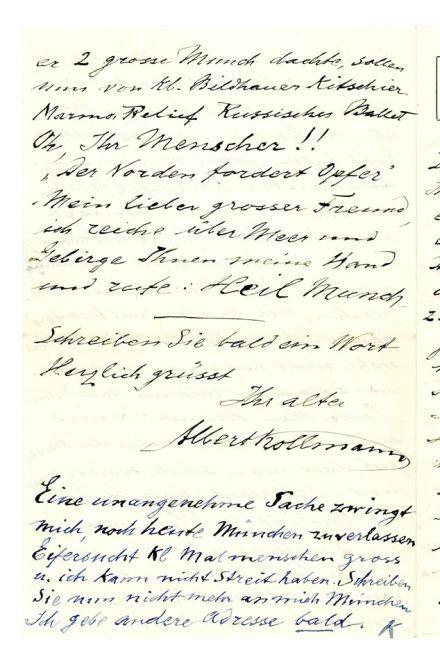 er 2 grosse Munch dachte, sollen
nun von Kl. Bildhauer Kitschier
Marmor Relief Russisches Ballet
Oh, Ihr Menscher!!
„Der Norden fordert Opfer"
Mein lieber grosser Freund,
ich reiche über Meer und
Gebirge Ihnen meine Hand
und rufe: Heil Munch
Schreiben Sie bald ein Wort
Herzlich grüsst
Ihr alter
Albert Kollmann
Eine unangenehme Sache zwingt
mich, noch heute München zu verlassen
Eifersucht Kl Malmenschen gross
u. ich kann nicht Streit haben. Schreiben
Sie nun nicht mehr an mich München
Ich gebe andere Adresse bald. K